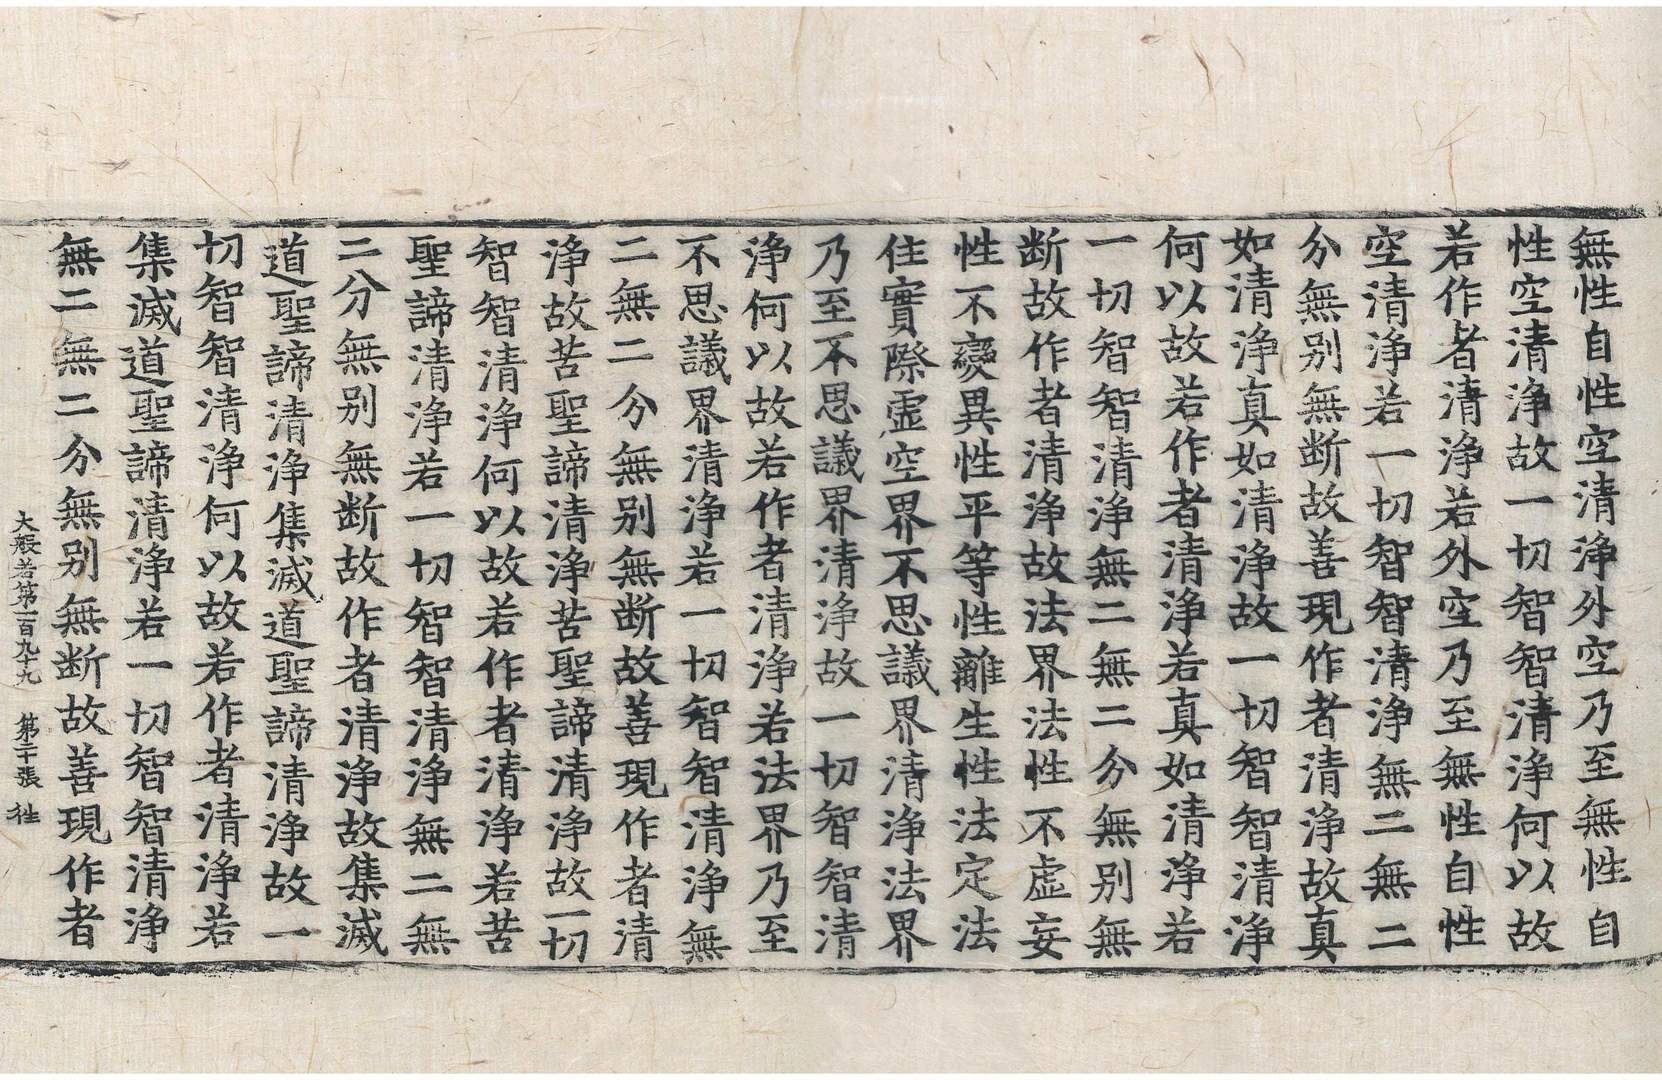 無性自性空清浄外空乃至無性自
性空清浄故一切智智清浄何以故
若作者清浄若外空乃至無性自性
空清浄若一切智智清浄無二無二
分無别無断故善現作者清浄故真
如清浄真如清浄故一切智智清浄
何以故若作者清浄若真如清浄若
一切智智清浄無二無二分無别無
断故作者清浄故法界法性不虚妄
性不變異性平等性離生性法定法
住實際虚空界不思議界清浄法界
乃至不思議界清浄故一切智智清
浄何以故若作者清浄若法界乃至
不思議界清浄若一切智智清浄無
二無二分無别無断故善現作者清
浄故苦聖諦清浄苦聖諦清浄故一切
智智清浄何以故若作者清浄若苦
聖諦清浄若一切智智清浄無二無
二分無别無断故作者清浄故集滅
道聖諦清浄集滅道聖諦清浄故一
切智智清浄何以故若作者清浄若
集滅道聖諦清浄若一切智智清浄
無二無二分無别無断故善現作者
大般若第一百九十九 第二十張 徃